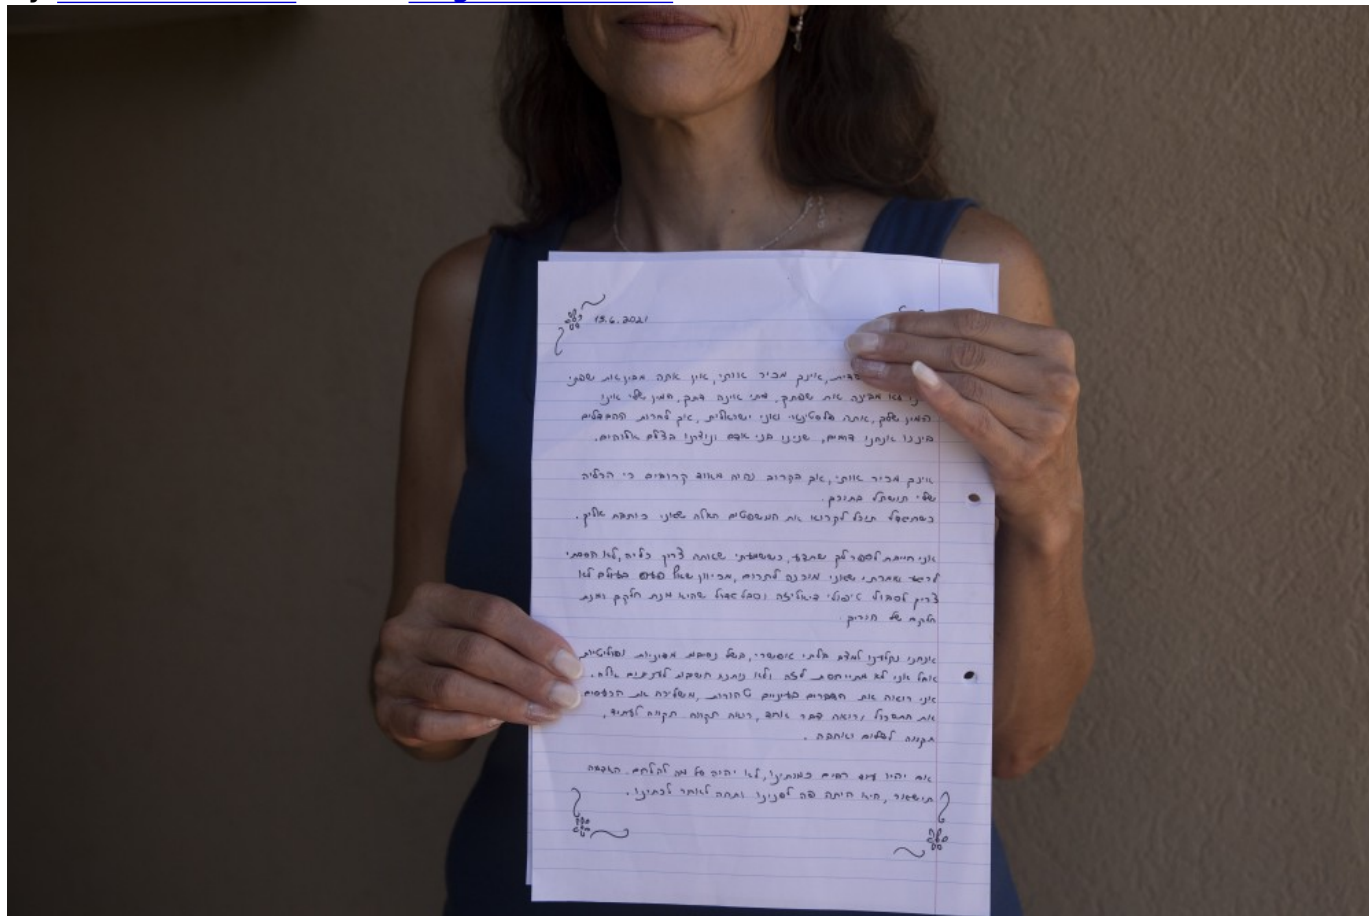 15.6.2021
אינך מכיר אותי, אין אתה מבין את שפתי
לא מבינה את שפתך, דתי אינה דתך, המין שלי אינו
המין שלך, אתה פלסטינאי ואני ישראלית, אך למרות ההבדלים
ביננו אנחנו דומים, שנינו בני אדם ונוצרנו בצלם אלוהים.
אינך מכיר אותי, אך בקרוב נהיה מאוד קרובים כי הכליה
שלי תושתל בתוכך.
כשתגדל תוכל לקרוא את המשפטים האלה שאני כותבת אליך.
אני חייבת לספר לך שחבע, כששמעתי שאתה צריך כליה, לא הססתי
לרגע ואמרתי שאני מוכנה לתרום, מכיוון שאף פעם בעולם לא
צריך לסבול טיפולי דיאליזה וסבל גדול שהיא מנת חלקך ומנת
חלקם של הוריך.
אנחנו נקלענו למצב בלתי אפשרי, בשל נסיבות ופוליטיות
אבל אני לא מתייחסת לזה ולא נותנת חשיבות לעניינים אלה.
אני רואה את הדברים בעיניים טהורות, משליכה את הכעסים
את התסכול ורואה דבר אחד, רואה תקווה תקווה לעתיד,
תקווה לשלום ואהבה.
אם יהיו עוד רבים כמותינו, לא יהיה על מה להלחם. האדמה
תישאר, היא היתה פה לפנינו ותהיה לאחר לכתינו.